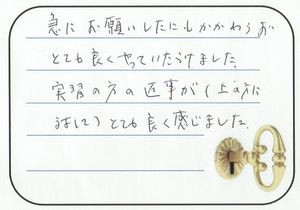 急にお願いしたにもかかわらず
とても良くやっていただけました。
実習の方の返事が（上の方に
対して）とても良く感じました。